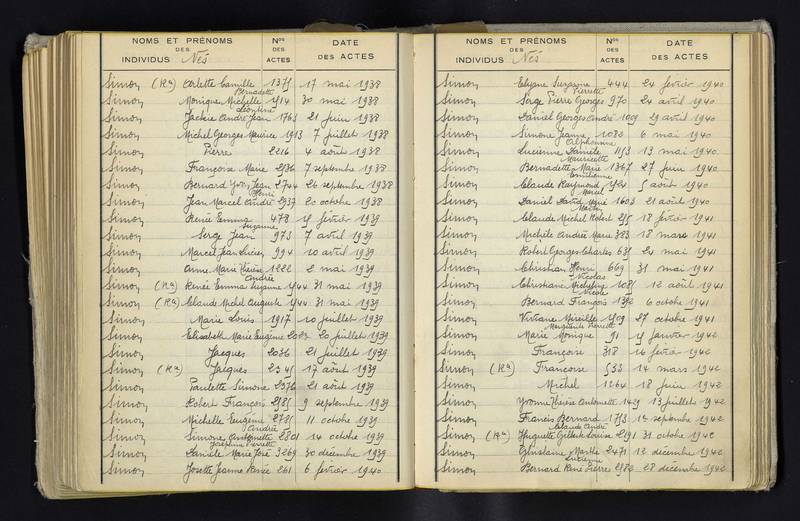 NOMS ET PRÉNOMS DES INDIVIDUS Nés Nos DES ACTES DATE DES ACTES
Simon (Ra) Arlette Camille 1375 17 mai 1938
Bernadette
Simon Monique Michelle 1414 30 mai 1938
Léontine
Simon Jackie André Jean 1763 21 juin 1938
Simon Michel Georges Maurice 1913 7 juillet 1938
Simon Pierre 2216 4 août 1938
Simon Françoise Marie 2536 7 septembre 1938
Simon Bernard Yvon Jean 2744 26 septembre 1938
Henri
Simon Jean Marcel André 2937 20 octobre 1938
Simon Renée Emma 478 février 1939
Suzanne
Simon Serge Jean 973 7 avril 1939
Simon Marcel Jean Lucien 994 10 avril 1939
Simon Anne Marie Thérèse 1222 2 mai 1939
André
Simon (Ra) Renée Emma Suzanne 1544 31 mai 1939
Simon (Ra) Claude Michel Auguste 1544 31 mai 1939
Simon Marie Louis 1917 10 juillet 1939
Simon Elisabeth Marie Eugène 20 juillet 1939
Simon Jacques 2036 21 juillet 1939
Simon (Ra) Jacques 2345 17 août 1939
Simon Paulette Simone 2376 21 août 1939
Simon Robert François 2585 9 septembre 1939
Simon Michelle Eugénie 2785 11 octobre 1939
André
Simon Simone Antoinette 2801 14 octobre 1939
Joséphine Pierrette
Simon Danièle Marie José 3269 30 décembre 1939
Simon Josette Jeanne Renée 261 6 février 1940
NOMS ET PRÉNOMS DES INDIVIDUS Nés Nos DES ACTES DATE DES ACTES
Simon Suzanne 444 24 février 1940
Pierrette
Simon Serge Pierre Georges 970 24 avril 1940
Simon Daniel Georges André 1009 29 avril 1940
Simon Simone Jeanne 1080 6 mai 1940
Alphonsine
Simon Lucienne Danièle 1153 13 mai 1940
Mauricette
Simon Bernadette Marie 1367 27 juin 1940
Emilienne
Simon Claude Raymond 1524 5 août 1940
Marcel
Simon Daniel David René 1603 21 août 1940
Martin
Simon Claude Michel Robert 255 18 février 1941
Simon Michèle Andrée Marie 383 18 mars 1941
Simon Robert Georges Charles 635 24 mai 1941
Simon Christian Henri 669 31 mai 1941
Nicolas
Simon Christiane Micheline 1085 12 août 1941
Nicole
Simon Bernard François 1392 6 octobre 1941
Simon Viviane Mireille 1509 27 octobre 1941
Marguerite Pierrette
Simon Marie Monique 91 janvier 1942
Simon Françoise 318 16 février 1942
Simon (Ra) Françoise 533 14 mars 1942
Simon Michel 1264 18 juin 1942
Simon Yvonne Thérèse Antoinette 1429 13 juillet 1942
Simon Francis Bernard 1753 12 septembre 1942
Claude André
Simon (Ra) Huguette Gilberte Louise 2191 31 octobre 1942
Simon Ghislaine Marthe 2471 12 décembre 1942
Lucienne
Simon Bernard René Pierre 2582 28 décembre 1942